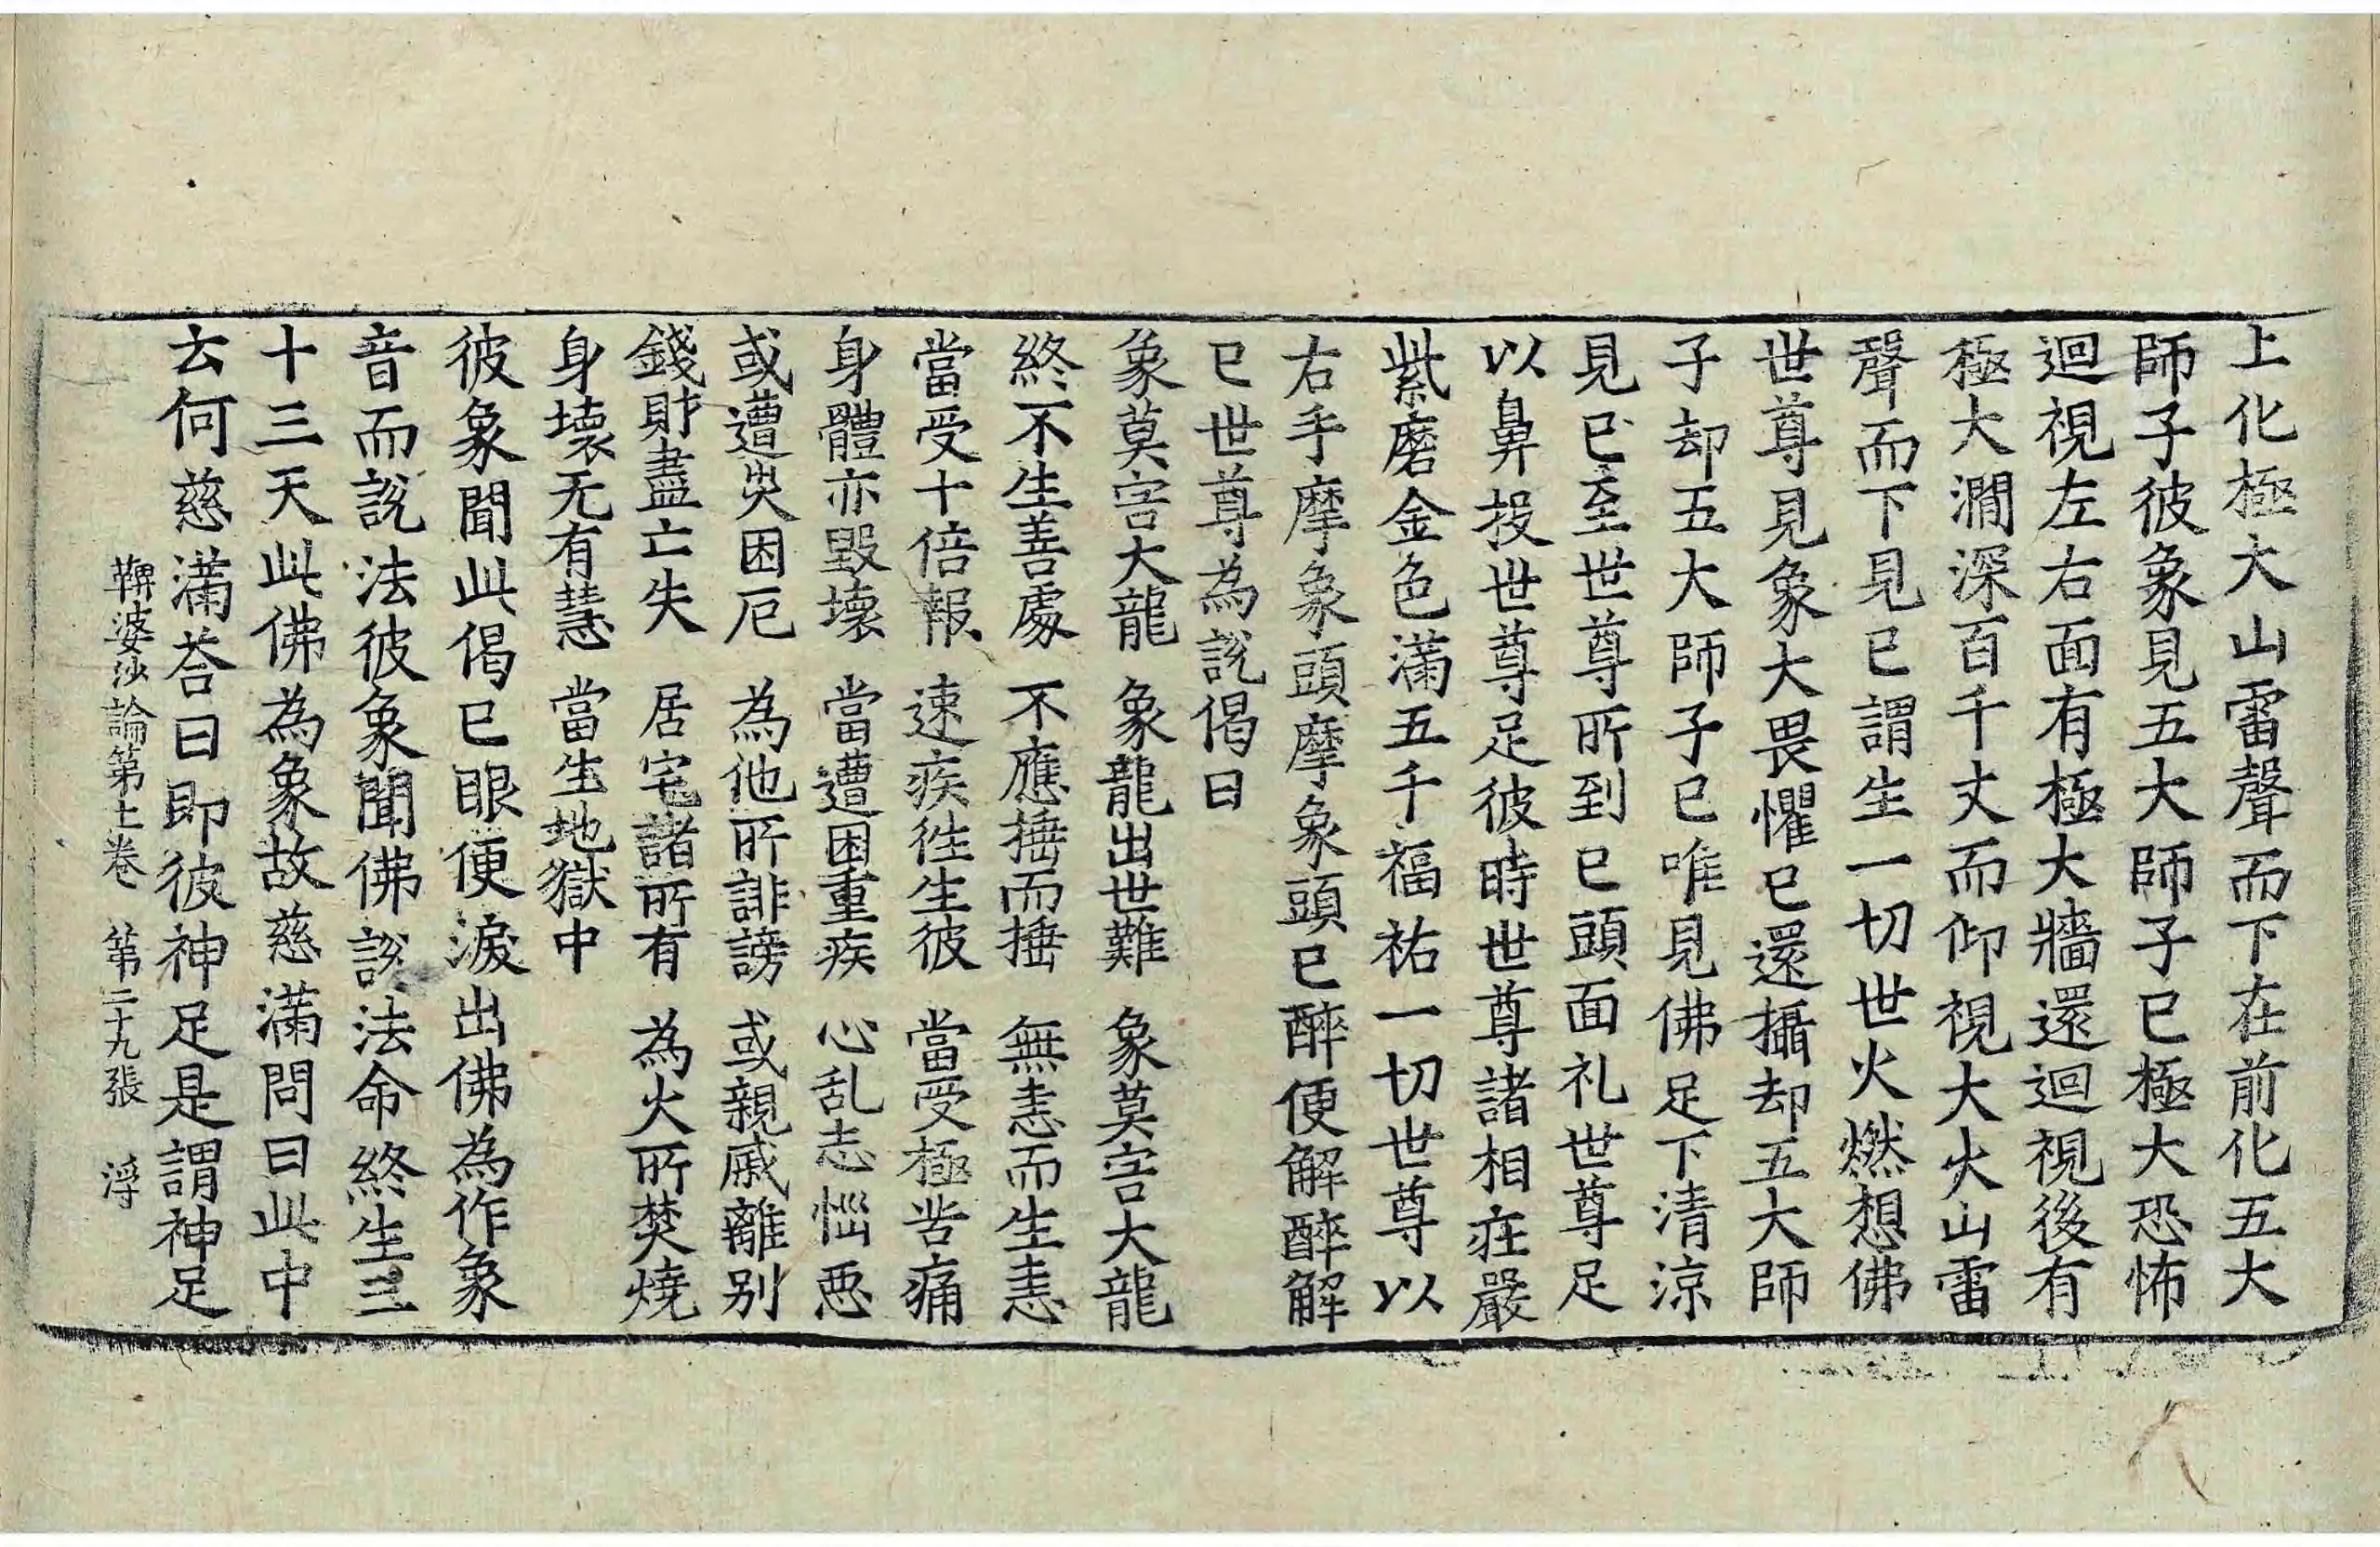 上化極大山雷聲而下在前化五大
師子彼象見五大師子已極大恐怖
迴視左右面有極大牆還迴視後有
極大澗深百千丈而仰視大火山雷
聲而下見已謂生一切世火燃想佛
世尊見象大畏懼已還攝却五大師
子却五大師子已唯見佛足下清涼
見已至世尊所到已頭面礼世尊足
以鼻投世尊足彼時世尊諸相莊嚴
紫磨金色滿五千福祐一切世尊以
右手摩象頭摩象頭已醉便解醉解
已世尊為說偈曰
象莫害大龍　象龍出世難　象莫害大龍
終不生善處　不應捶而捶　無恚而生恚
當受十倍報　速疾徃生彼　當受極苦痛
身體亦毀壞　當遭困重疾　心乱志惱惡
或遭災困厄　為他所誹謗　或親戚離別
錢財盡亡失　居宅諸所有　為火所焚燒
身壞无有慧　當生地獄中
彼象聞此偈已眼便淚出佛為作象
音而說法彼象聞佛說法命終生三
十三天此佛為象故慈滿問曰此中
云何慈滿荅曰即彼神足是謂神足
鞞婆沙論第十一卷　第二十九張　浮